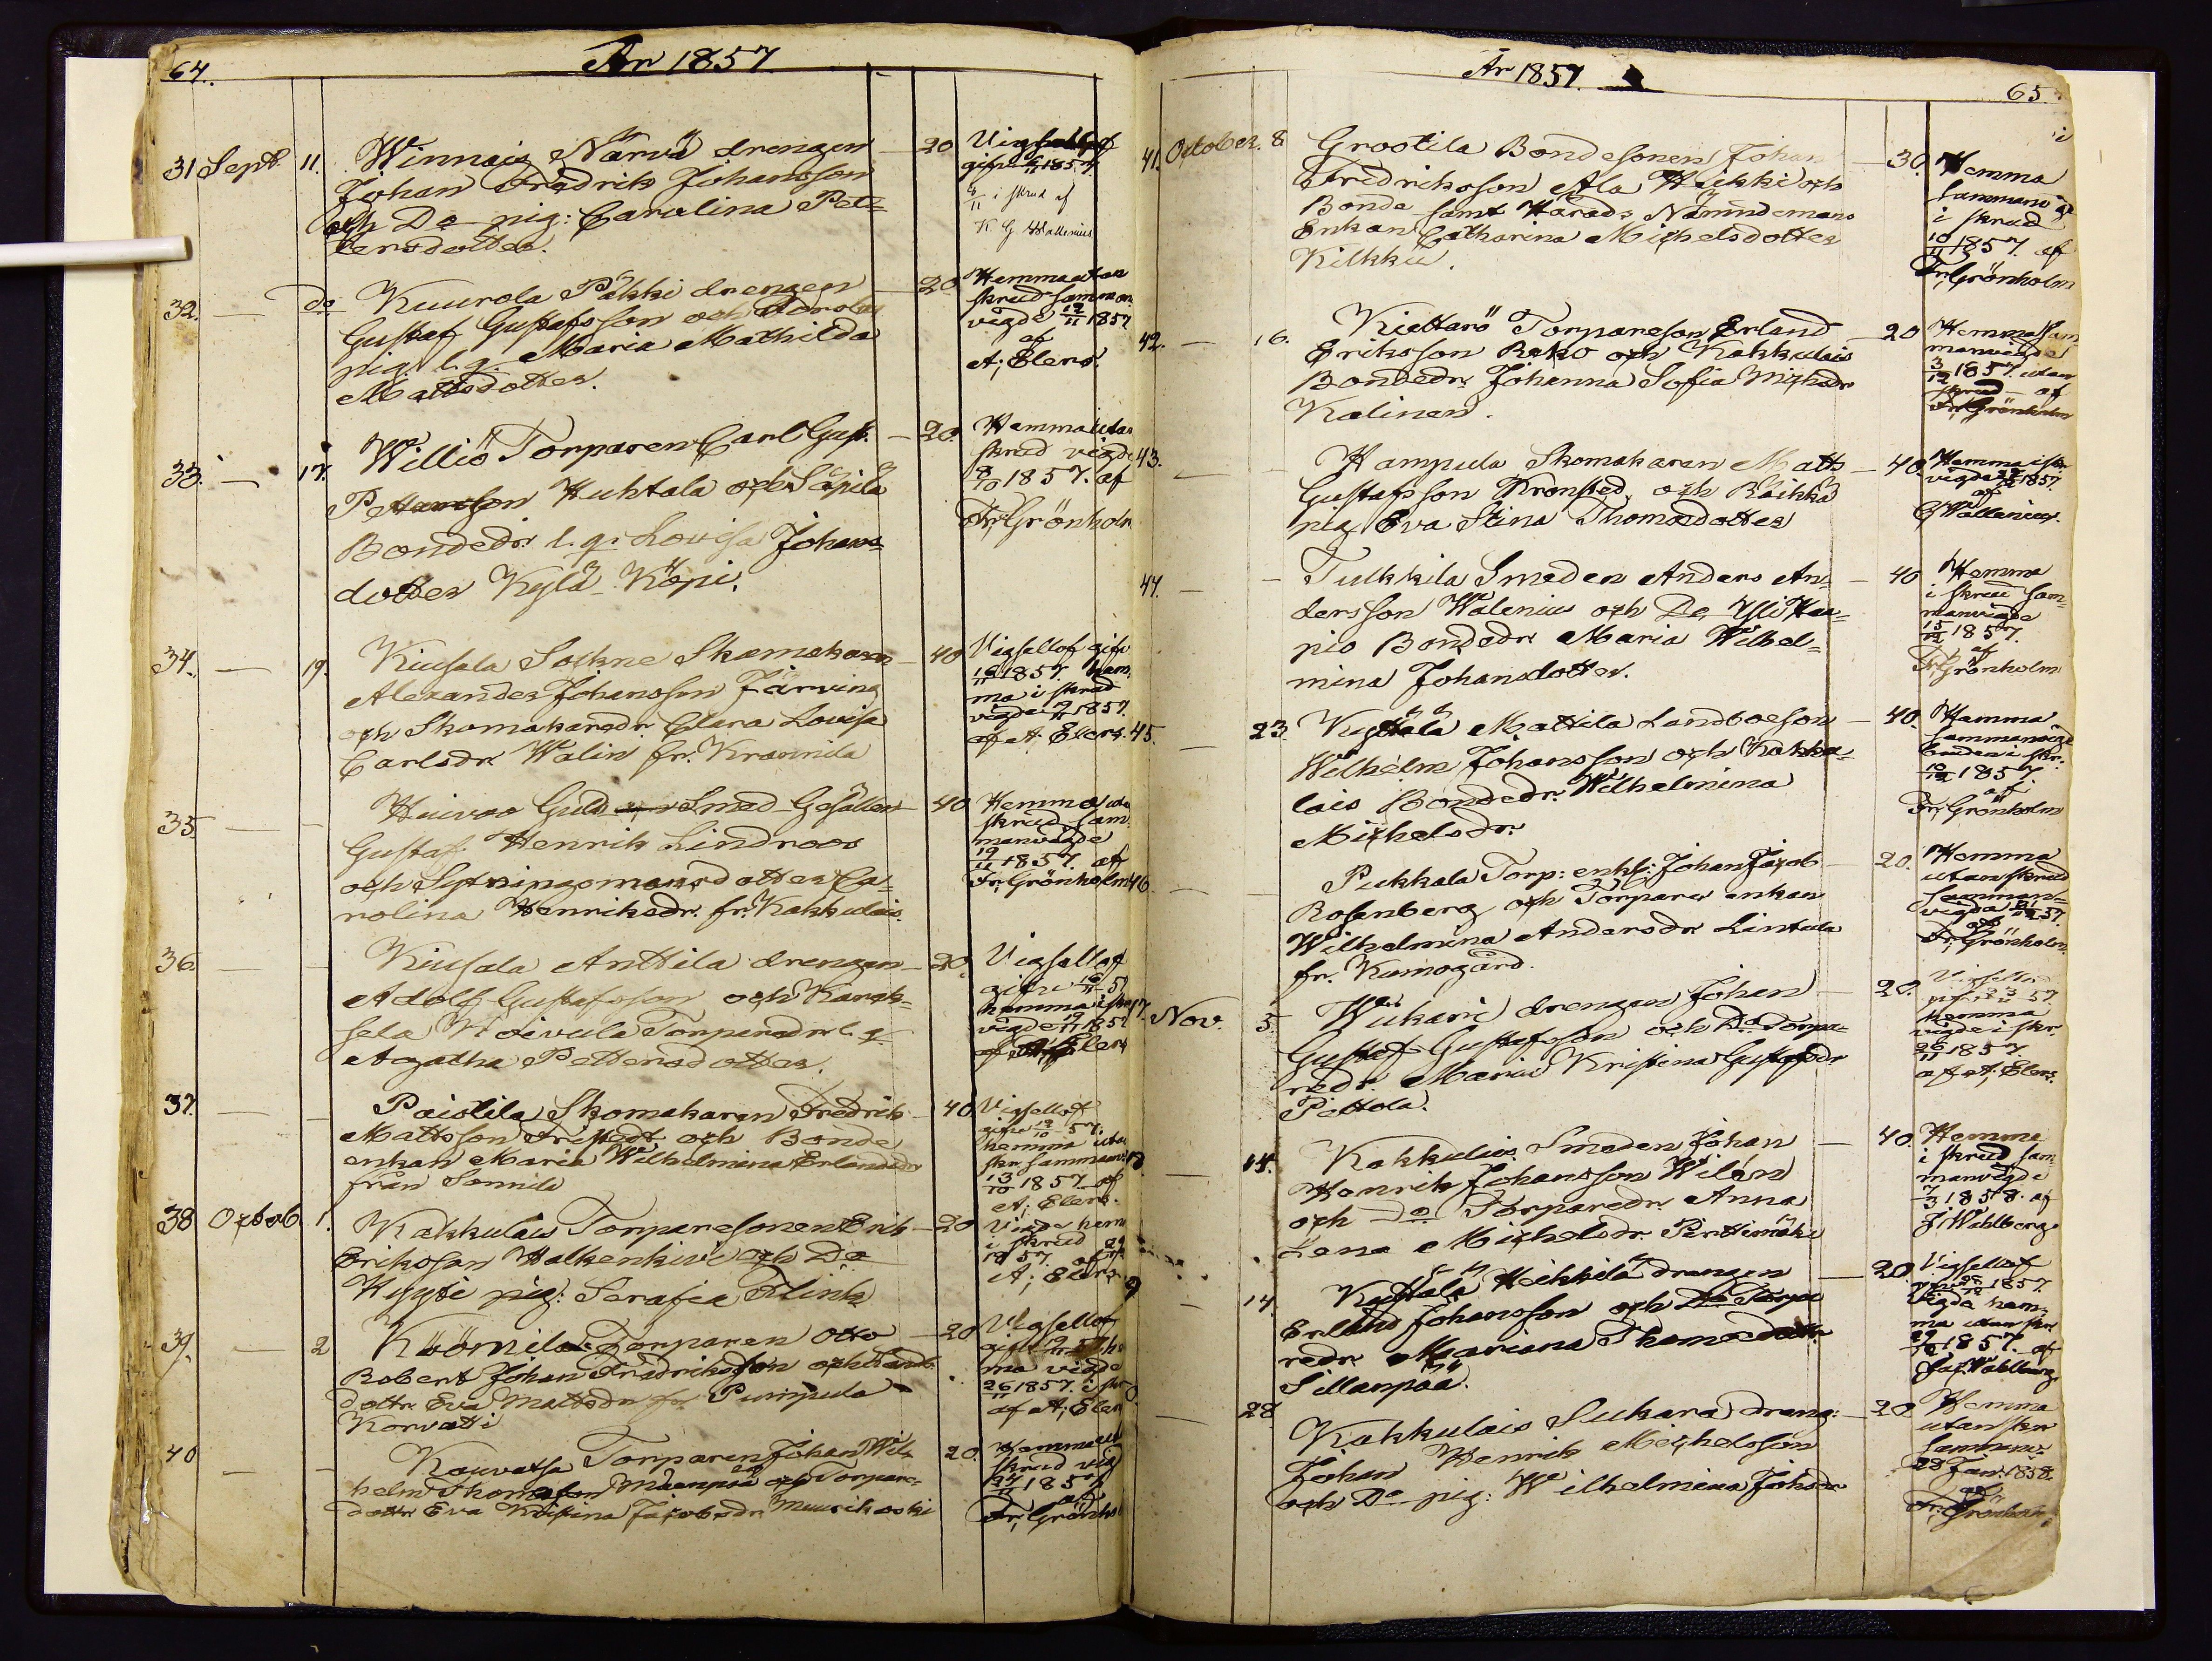 64.
År 1857.
31 Sept. 11. Winnais Närvä drengen
Johan Fredrik Johansson
och Do pig: Carolina Pet-
tersdotter.
20
gifvet 1857.
i skrud af
K G Wallenius
32. — do Kuurola Päkki drengen
Gustaf Gustafsson och
pig. l. q. Maria Mathilda
Mattsdotter.
20
Hemma utan
skrud samman
vigde 12/11 1857
af
A; Elers.
33. — 17. Williö Torparen Carl Gust.
Pettersson Huhtala och Säpilä
Bondedr. l. q. Lovisa Johans-
dotter Kylä-Köpi.
20.
Hemma utan
skrud vigde
8/10 1857. af
Fr; Grönholm
34. — 19. Kiusala Sockne Skomakaren
Alexander Johansson Järvin
och Skomakaredr. Clara Lovisa
Carlsdr. Walin fr. Kraunila
40
Vigsellof gifv.
1857. hem-
ma i skrud
vigde 1857.
af A; Elers.
35 — — Huivoo Guld Smed Gesällen
Gustaf Henrik Lindroos
och Sytningsmansdotter Ca-
rolina Henriksdr. fr. Kakkulais.
40
Hemma utan
skrud sam-
manvigde
19/11 1857. af
Fr; Grönholm
36 — — Kiusala Anttila drengen
Adolf Gustafsson och
Moivula Torparedr. l. q.
Agatha Pettersdotter.
20.
Vigsellof
gifvet 57
hemma i skr
vigde 19/11 1857
af A; Elers
37. — — Paistila Skomakaren Fredrik
Mattsson Fristedt och Bonde
enkan Maria Wilhelmina Erlandsdr
från Sonnila
40
Vigsellof
gifvet 12/10 57.
hemma utan
skr. samman
13/10 1857 af
A; Elers.
38 Octob. 1. Kakkulais Torparesonen Erik
Eriksson Walkenkivi och Do
Hyyti pig: Serafia Flink
20
Vigde hem
i skrud
1857 af
A; Elers
39. — 2 Köömilä Torparen Otto
Robert Johan Fredriksson och
dottr. Eva Mattsdr fr. Pumpula
Korvatti
20
Vigsellof
gifvet 57. he
ma vigde
26/11 1857. i skr
af A; Elers
40 — — Kauvatsa Torparen Johan Wil-
helm Thomasson Mäenpää och Torpare-
dottr Eva Kristina Jacobsdr. Muurikoski
20.
Hemma utan
skrud vig
24/11 1857
af
Fr; Grönho
År 1857.
65
41. October. 8 Grootila Bondesonen Johan
Fredriksson Ala Heikki och
Bonde samt Härads Nämndemans
Enkan Catharina Michelsdotter
Kilkku.
30.
Hemma
sammanvige
i skrud
10/11 1857. af
Fr; Grönholm
42. — 16. Kiettarö Torpareson Erland
Eriksson Rako och Kakkulais
Bondedr. Johanna Sofia Michsdr
Kalinen.
20
Hemma sam
manvigde
3/12 1857. utan
skrud — af
Fr; Grönholm
43. — — Hampula Skomakaren Matts
Gustafsson Kronsted, och Räikkä
pig. Eva Stina Thomasdotter
40.
Hemma i skr.
vigde 1857.
af
Wallenius.
44. — — Tulkkila Smeden Anders An-
dersson Walenius och Do Ylli Hau-
pio Bondedr Maria Wilhel-
mina Johansdotter.
40
Hemma
i skrud sam-
manvigde
15/12 1857.
af
Fr; Grönholm
45. — 23. Kyttälä Mattila Landboeson
Wilhelm Johansson och Kakku-
lais Bondedr. Wilhelmina
Michelsdr.
40.
Hemma
sammanvigde
i skr.
10/12 1857.
af
Fr; Grönholm
46. — — Pukkala Torp: enkl: Johan Jacob
Rosenberg och Torpare enkan
Wilhelmina Andersdr Lintula
fr. Kumogård.
20.
Hemma
utan skrud
samman-
vigda 57.
af
Fr; Grönholm
47. Nov. 5. Wukari drengen Johan
Gustaf Gustafsson och Do Torpa-
redr. Maria Kristina Gustafsdr
Pietola.
20.
Vigsellof
57.
hemma
vigde i skr.
26/11 1857
af A; Elers.
— 14. Kakkulais Smeden Johan
Henrik Johansson Wilén
och Do Torparedr. Anna
Lena Michelsdr. Perttimäki
40.
Hemma
i skrud sam-
manvigde
7/3 1858. af
J; Wahlberg.
9 — 14 Kyttälä Heikkilä drengen
Erland Johansson och Do Torpa
redr. Mariana Thomasdottr
Sillanpää.
20.
Vigsellof
1857.
vigda hem-
ma utan skr
29/12 1857. af
Wahlberg.
— 28 Kakkulais Sukara dreng:
Johan Henrik Michelsson
och Do pig: Wilhelmina Johsdr
20
Hemma
utan skr
samman-
28 Jan. 1858.
af
Fr; Grönholm